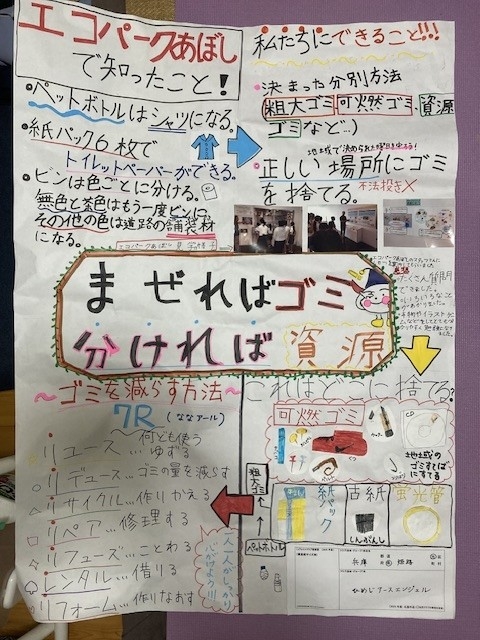 エコパークあぼし
で知ったこと!
・ペットボトルはシャツになる。
・紙パック6枚で
トイレットペーパーができる。
・ビンは色ごとに分ける。
無色と茶色はもう一度ビンに、
その他の色は道路の舗装材
になる。
私たちにできること!!!
・決まった分別方法
(粗大ゴミ、可燃ゴミ、資源
ゴミなど…)
地域で決められた
・正しい場所にゴミ
を捨てる。
不法投き×
まぜればゴミ
分ければ資源
〜ゴミを減らす方法〜
7R(ななアール)
リユース…何度も使う
ゆずる
リデュース…ゴミの量を減らす
リサイクル…作りかえる
リペア…修理する
リフューズ…ことわる
レンタル…借りる
リフォーム…作りなおす
一人一人がしっかり
これはどこに捨てる?
可燃ゴミ
CD
地域の
ゴミすてばにすてる
粗大ゴミ
ペットボトル
紙パック
古紙
しんぶんし
蛍光管
兵庫
姫路
ひめじアースエンジェル